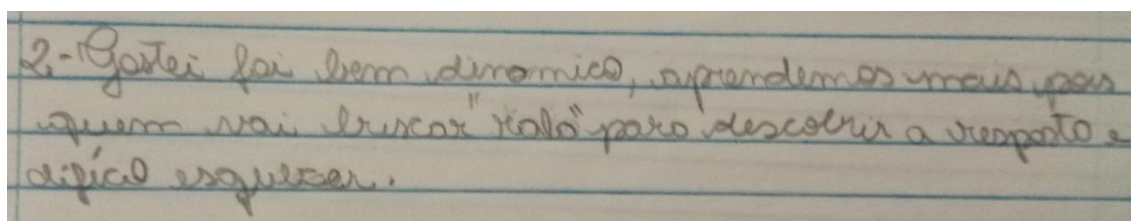 2-Gostei foi bem dinamico, aprendemos mais pois
quem vai buscar "rala" para descobrir a resposta e
dificil esquecer.